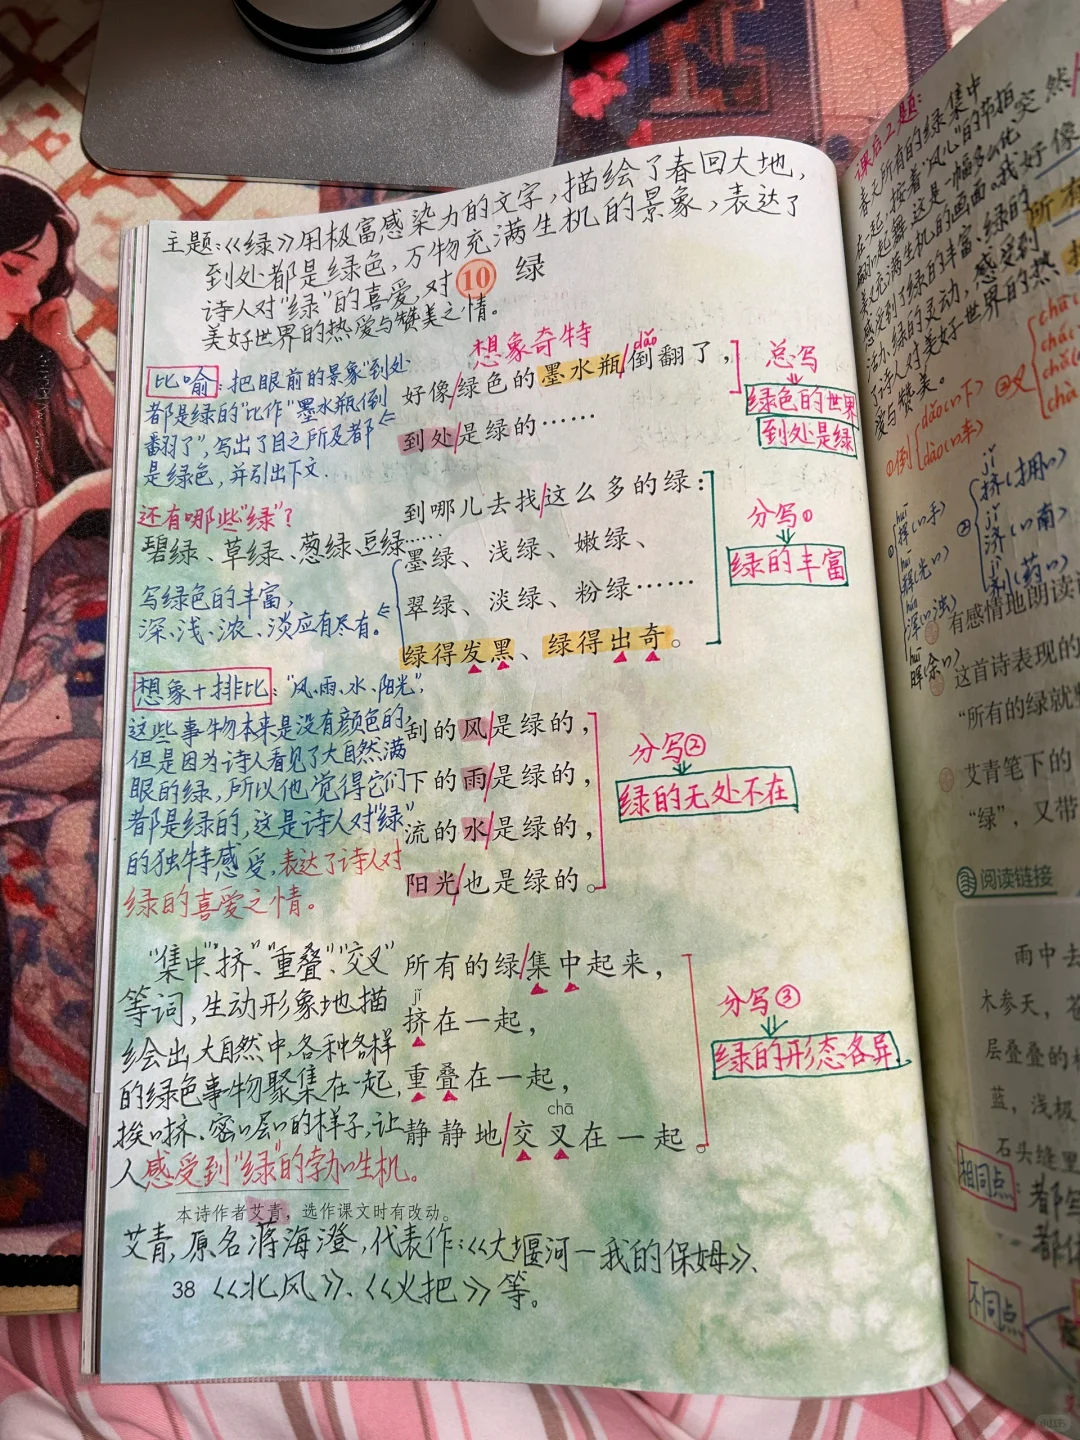 主题:《绿》用极富感染力的文字,描绘了春回大地,
到处都是绿色,万物充满生机的景象,表达了
诗人对“绿”的喜爱,对
美好世界的热爱与赞美之情。
10 绿
想象奇特
dǎo
好像/绿色的墨水瓶/倒翻了,
到处/是绿的……
总写
绿色的世界
到处是绿
比喻:把眼前的景象“到处
都是绿的”比作“墨水瓶倒
翻了”,写出了目之所及都
是绿色,并引出下文.
还有哪些“绿”?
碧绿、草绿、葱绿、豆绿……
写绿色的丰富,
深、浅、浓、淡应有尽有。
到哪儿去找/这么多的绿:
墨绿、浅绿、嫩绿、
翠绿、淡绿、粉绿……
绿得发黑、绿得出奇。
分写①
绿的丰富
想象+排比:“风、雨、水、阳光”,
这些事物本来是没有颜色的,
但是因为诗人看见了大自然满
眼的绿,所以他觉得它们
都是绿的,这是诗人对“绿”
的独特感受,表达了诗人对
绿的喜爱之情。
刮的风/是绿的,
下的雨/是绿的,
流的水/是绿的,
阳光/也是绿的。
分写②
绿的无处不在
“集中”、“挤”、“重叠”、“交叉”
等词,生动形象地描
绘出大自然中,各种各样
的绿色事物聚集在一起,
挨挨挤挤、密密层层的样子,让
人感受到“绿”的勃勃生机。
所有的绿/集中起来,
jǐ
挤在一起,
重叠在一起,
chā
静静地/交叉在一起。
分写③
绿的形态各异
本诗作者艾青,选作课文时有改动。
艾青,原名蒋海澄,代表作:《大堰河—我的保姆》、
38 《北风》、《火把》等。
课后2题:
春天所有的绿集中
在一起,按着“风儿”的节拍
翩翩起舞,这是一幅多么优
美又充满生机的画面。我好像
感受到了绿的丰富、绿的
活力、绿的灵动,感受到
了诗人对美好世界的热
爱与赞美。
突然
所有
①倒
dǎo(一下)
②叉
挤(拥一)
济(一南)
剂(药一)
挥(一手)
辉(光一)
浑(一浊)
晖(余一)
有感情地朗读
这首诗表现的
“所有的绿就
艾青笔下的
“绿”,又带
阅读链接
雨中去
木参天,苍
层叠叠的
蓝,浅极
石头缝里
相同点:
都写
都体
不同点